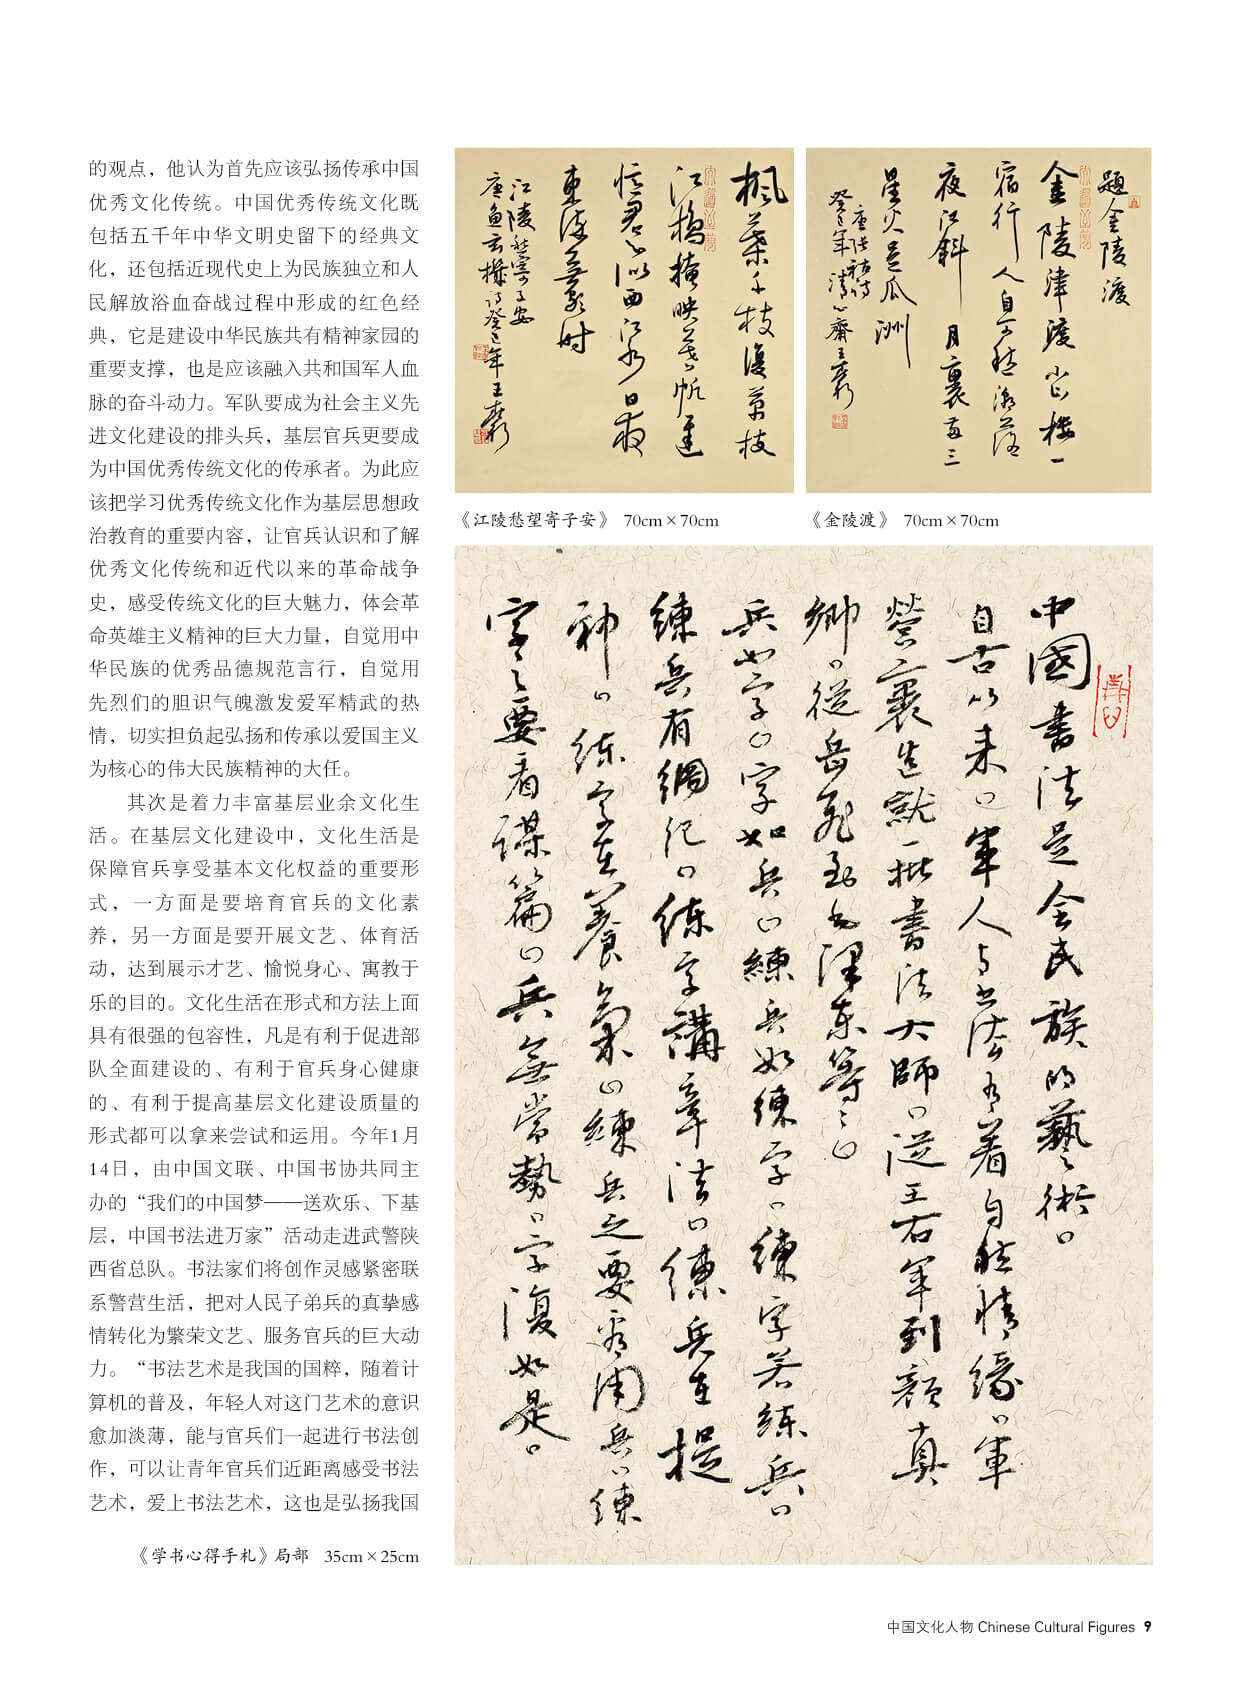 的观点，他认为首先应该弘扬传承中国
优秀文化传统。中国优秀传统文化既
包括五千年中华文明史留下的经典文
化，还包括近现代史上为民族独立和人
民解放浴血奋战过程中形成的红色经
典，它是建设中华民族共有精神家园的
重要支撑，也是应该融入共和国军人血
脉的奋斗动力。军队要成为社会主义先
进文化建设的排头兵，基层官兵更要成
为中国优秀传统文化的传承者。为此应
该把学习优秀传统文化作为基层思想政
治教育的重要内容，让官兵认识和了解
优秀文化传统和近代以来的革命战争
史，感受传统文化的巨大魅力，体会革
命英雄主义精神的巨大力量，自觉用中
华民族的优秀品德规范言行，自觉用
先烈们的胆识气魄激发爱军精武的热
情，切实担负起弘扬和传承以爱国主义
为核心的伟大民族精神的大任。
其次是着力丰富基层业余文化生
活。在基层文化建设中，文化生活是
保障官兵享受基本文化权益的重要形
式，一方面是要培育官兵的文化素
养，另一方面是要开展文艺、体育活
动，达到展示才艺、愉悦身心、寓教于
乐的目的。文化生活在形式和方法上面
具有很强的包容性，凡是有利于促进部
队全面建设的、有利于官兵身心健康
的、有利于提高基层文化建设质量的
形式都可以拿来尝试和运用。今年1月
14日，由中国文联、中国书协共同主
办的“我们的中国梦——送欢乐、下基
层，中国书法进万家”活动走进武警陕
西省总队。书法家们将创作灵感紧密联
系警营生活，把对人民子弟兵的真挚感
情转化为繁荣文艺、服务官兵的巨大动
力。“书法艺术是我国的国粹，随着计
算机的普及，年轻人对这门艺术的意识
愈加淡薄，能与官兵们一起进行书法创
作，可以让青年官兵们近距离感受书法
艺术，爱上书法艺术，这也是弘扬我国
《学书心得手札》局部 35cm×25cm
楓葉千枝復萬枝
江橋掩映暮帆遲
憶君心似西江水日夜
東流無歇時
江陵愁望寄子安
唐魚玄機詩癸巳年王
《江陵愁望寄子安》 70cm×70cm
題金陵渡
金陵津渡小山樓一
宿行人自可愁潮落
夜江斜月裏兩三
星火是瓜洲
唐張祜詩
癸巳年清心齋王
《金陵渡》 70cm×70cm
中國書法是全民族的藝術
自古以来軍人与书法有着自然情缘軍
營裏造就一批書法大師從王右軍到顏真
卿從岳飛到毛澤東等等
兵如字字如兵練兵如練字練字若练兵
練兵有綱纪练字講章法练兵在提
神练字在養氣練兵之要看用兵練
字之要看谋篇兵無常勢字復如是
中国文化人物 Chinese Cultural Figures 9